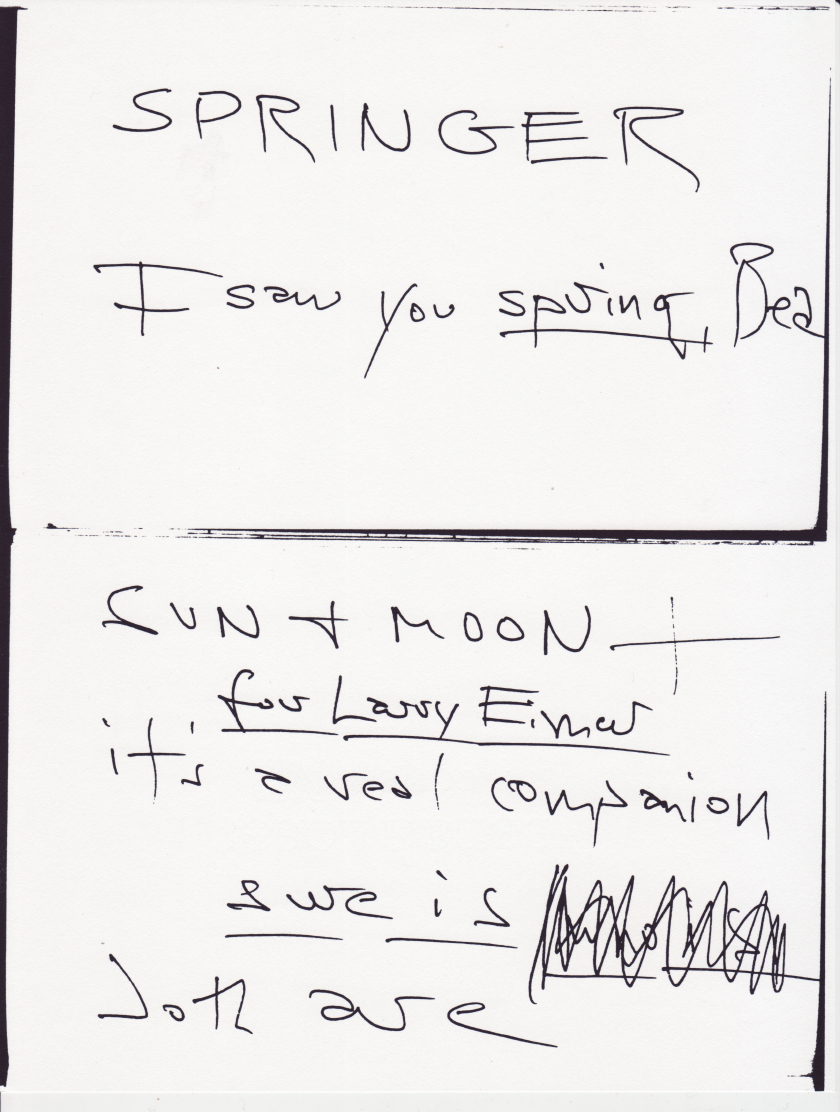 SPRINGER
I saw you spring, Bea
SUN + MOON +
for Larry Eigner
it's a real companion
sure is
both are